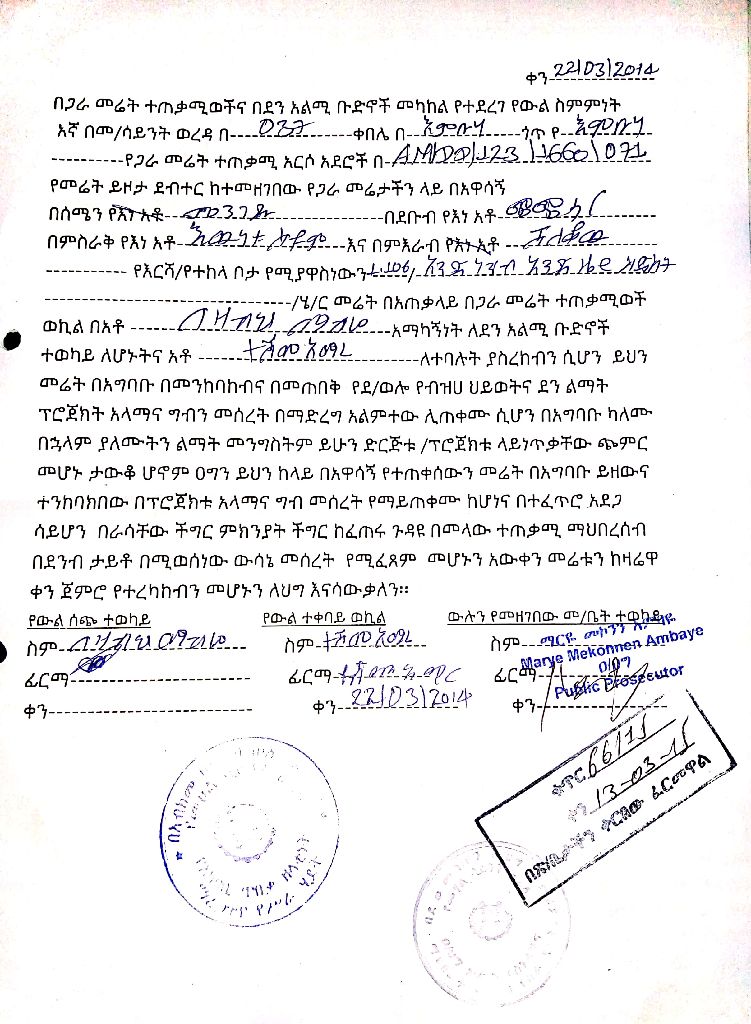 ቀን 22/03/2014
በጋራ መሬት ተጠቃሚወችና በደን አልሚ ቡድኖች መካከል የተደረገ የውል ስምምነት
እኛ በመ/ሳይንት ወረዳ በ---- 037 ----ቀበሌ በ---- ጎጥ የ----
----------የጋራ መሬት ተጠቃሚ አርሶ አደሮች በ- AM/DD/123/1660/071
የመሬት ይዞታ ደብተር ከተመዘገበው የጋራ መሬታችን ላይ በአዋሳኝ
በሰሜን የእነ አቶ ---- በደቡብ የእነ አቶ
በምስራቅ የእነ አቶ ---- እና በምእራብ የእነ አቶ
---------- የእርሻ/የተከላ ቦታ የሚያዋስነውን 1.106/
----------/ሄ/ር መሬት በአጠቃላይ በጋራ መሬት ተጠቃሚወች
ወኪል በአቶ ---- አማካኝነት ለደን አልሚ ቡድኖች
ተወካይ ለሆኑትና አቶ ---- ተሾመ እሸቴ ----ለተባሉት ያስረከብን ሲሆን ይህን
መሬት በአግባቡ በመንከባከብና በመጠበቅ የደ/ወሎ የብዝሀ ህይወትና ደን ልማት
ፕሮጀክት አላማና ግብን መሰረት በማድረግ አልምተው ሊጠቀሙ ሲሆን በአግባቡ ካለሙ
በኋላም ያለሙትን ልማት መንግስትም ይሁን ድርጅቱ /ፕሮጀክቱ ላይነጥቃቸው ጭምር
መሆኑ ታውቆ ሆኖም ዐግን ይህን ከላይ በአዋሳኝ የተጠቀሰውን መሬት በአግባቡ ይዘውና
ተንከባክበው በፕሮጀክቱ አላማና ግብ መሰረት የማይጠቀሙ ከሆነና በተፈጥሮ አደጋ
ሳይሆን በራሳቸው ችግር ምክንያት ችግር ከፈጠሩ ጉዳዩ በመላው ተጠቃሚ ማህበረሰብ
በደንብ ታይቶ በሚወሰነው ውሳኔ መሰረት የሚፈጸም መሆኑን አውቀን መሬቱን ከዛሬዋ
ቀን ጀምሮ የተረካከብን መሆኑን ለህግ እናሳውቃለን።
የውል ሰጭ ተወካይ የውል ተቀባይ ወኪል ውሉን የመዘገበው መ/ቤት ተወካይ
ስም ---- ስም ---- ስም ማርዬ መኮንን አምባዬ
Marye Mekonnen Ambaye
ፊርማ ---- ፊርማ ---- ፊርማ
ዐ/ህግ
Public Prosecutor
ቀን ---- ቀን 22/03/2014 ቀን
ቁጥር 66/15
ቀን 13-03-15